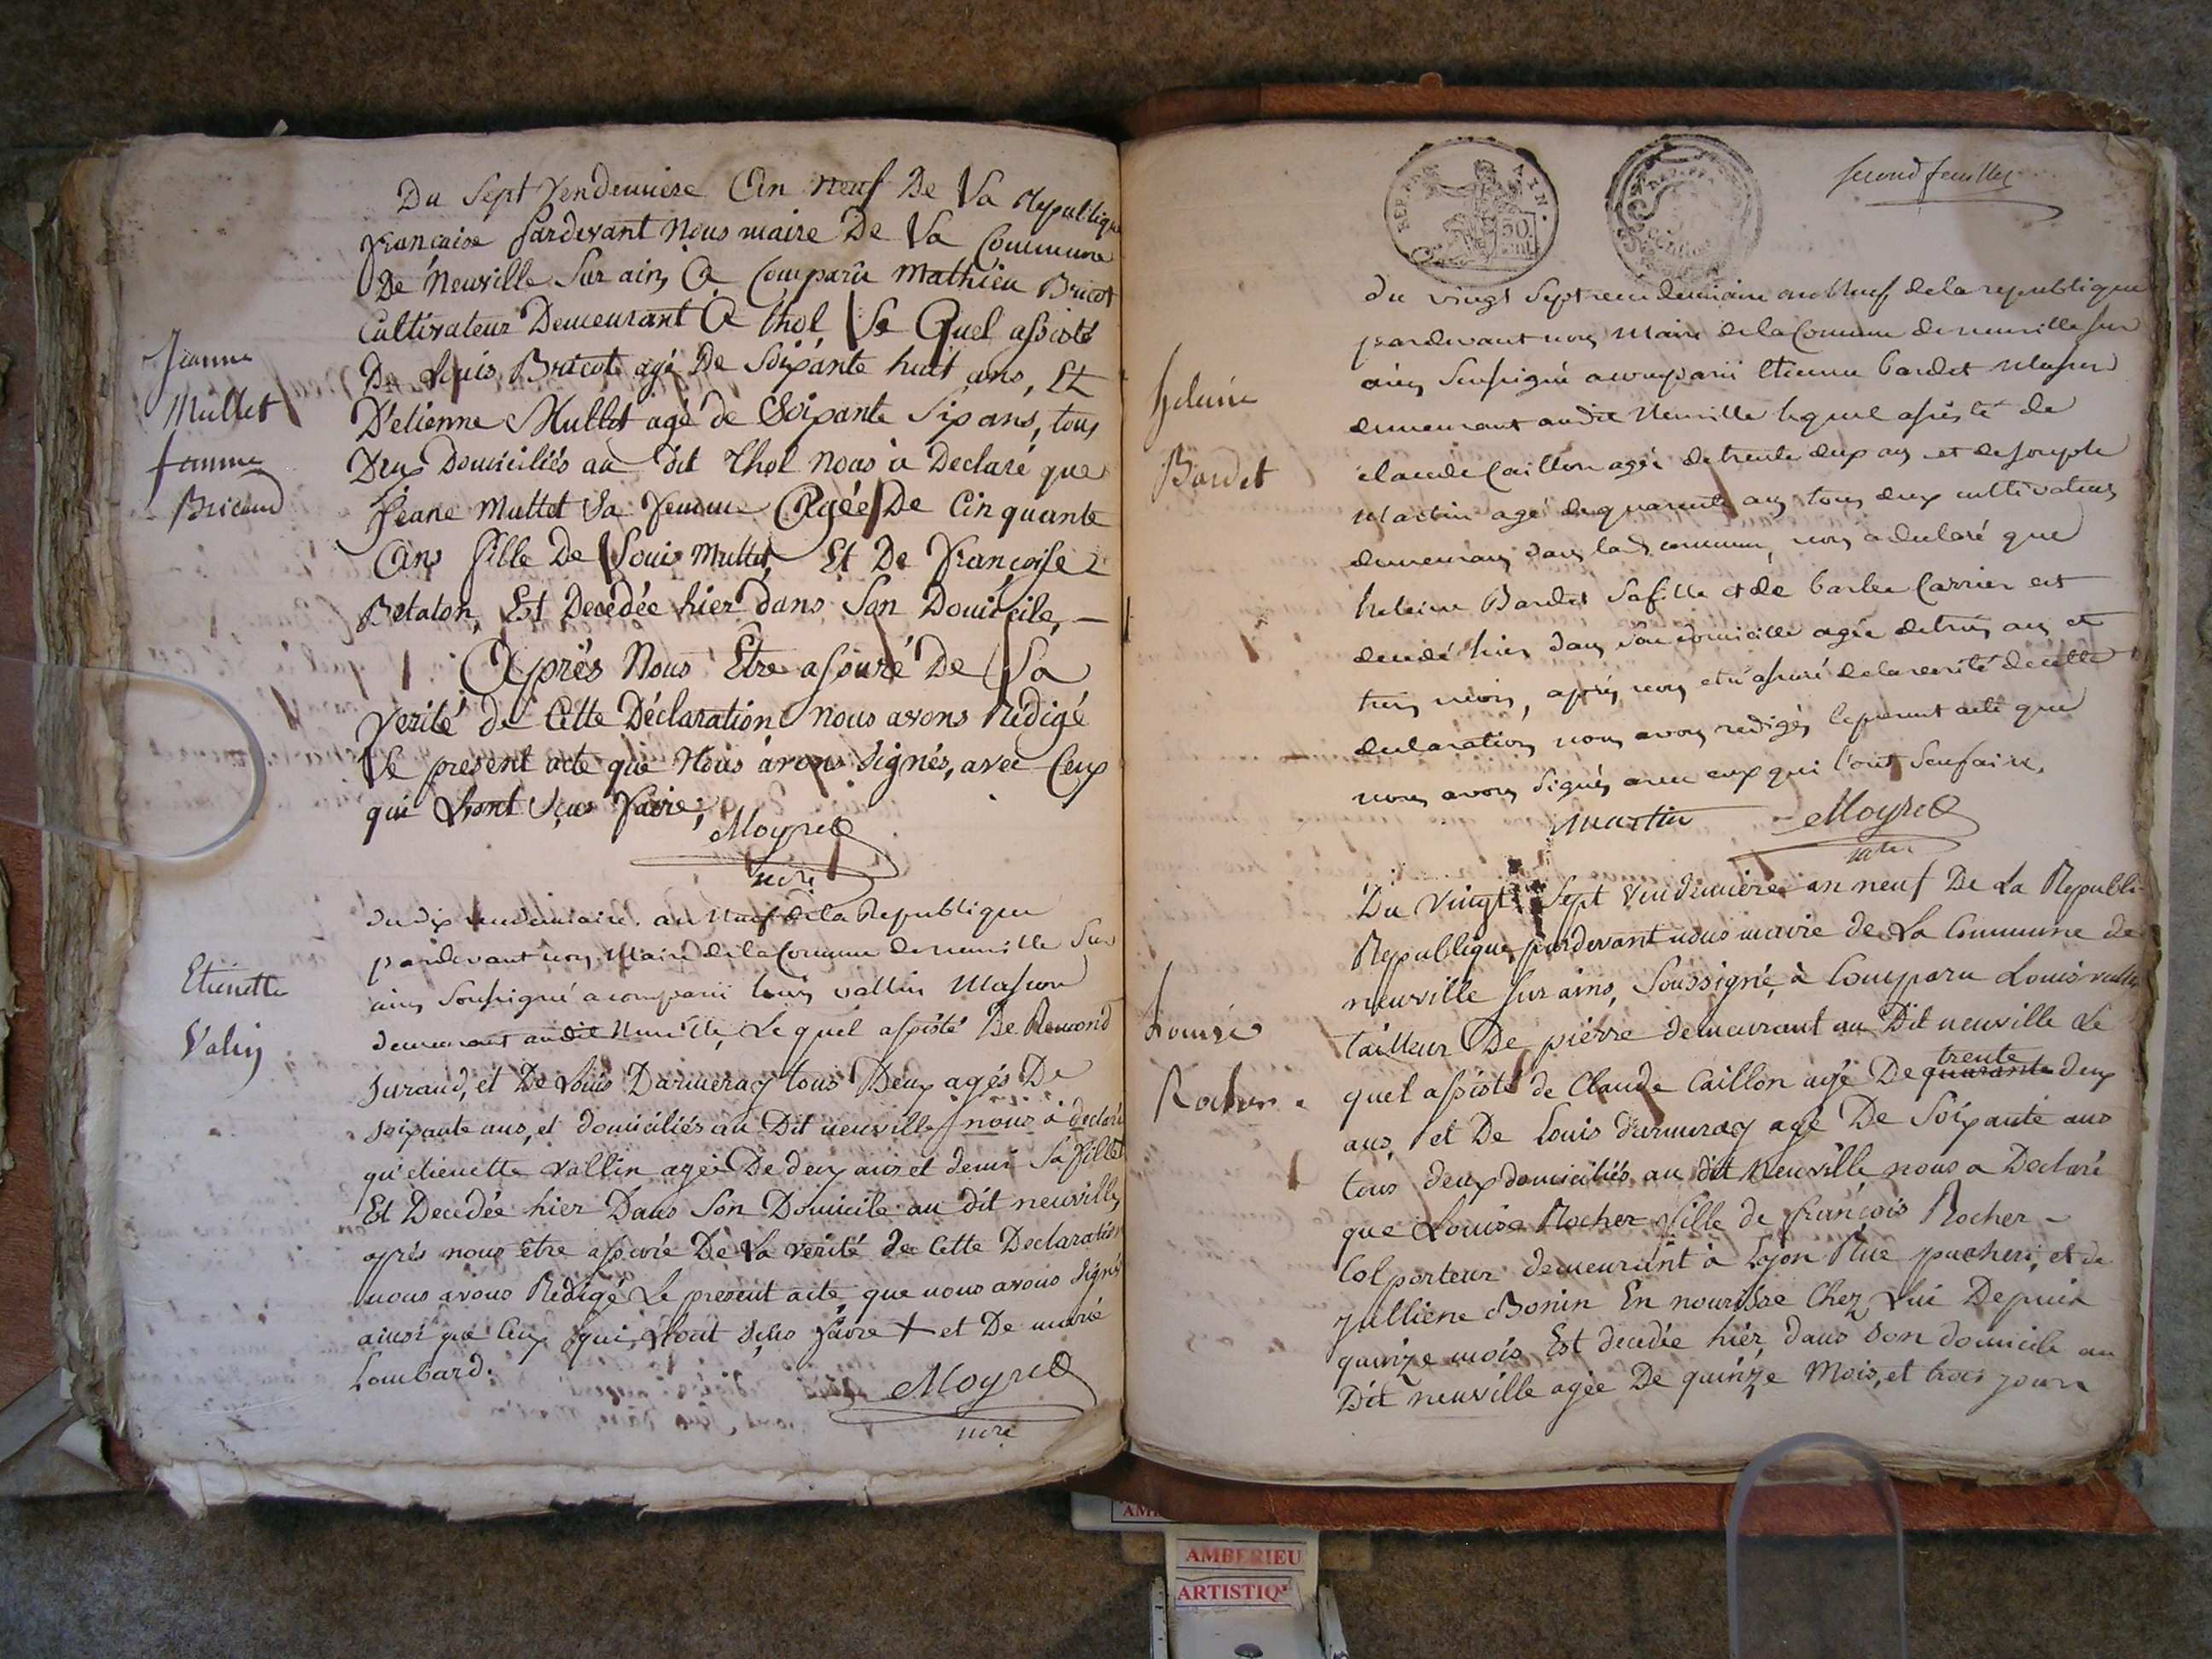 Du Sept Vendemiere An neuf De La Republique
Française Pardevant Nous maire De La Commune
De Neuville Sur ain, A Comparû Mathieu Bricot
Cultivateur Demeurant A thol Le Quel assisté
De Louis Bricot agé De Soixante huit ans, Et
D'etienne Mullet agé de Soixante Six ans, tous
Deux Domiciliés au dit Thol Nous à Declaré que
Jeane Mullet Sa Femme Agée De Cinquante
Ans fille De Louis Mullet, Et De Françoise
Betalon, Est Decedée hier dans Son Domicile, —
Après Nous Etre assuré De La
Verité de Cette Déclaration nous avons Rédigé
Le present acte que Nous avons Signés, avec Ceux
qui L'ont Sçus Faire,
Moyret
Jeanne
Mullet
femme
du dix vendemiaire. an Neuf de la Republique
pardevant nous Maire de la Comune de neuville Sur
ains Soussigné a comparü Louis vallin Masson
demeurant audit Neuville, Le quel assisté De Remond
Juraud, et De Louis Darmeray tous Deux agés De
soixante ans, et domiciliés au Dit neuville nous à declaré
qu'etienette vallin agée De deux ans et demi Sa fille
Est Decedée hier Dans Son Domicile au dit neuville,
après nous Etre assuré De La verité de Cette Declaration
nous avons Rédigé Le present acte, que nous avons Signé
ainsi que Ceux qui L'ont Sçus faire + et De marie
Lombard.
Moyret
Etienette
Valin
second feuillet
REP. FRA. AYN.
50.
du vingt Sept vendemiaire an Neuf de la republique
pardevant nous Maire de la Comune de neuville sur
ains Soussigné a comparü Etienne bardet Masson
demeurant audit Neuville lequel assisté de
claude Caillon agée de trente deux ans et de Joseph
Martin agé de quarante ans tous deux cultivateurs
demeurans dans lad commune, nous a declaré que
heleine Bardet Sa fille et de barbe Carrier est
decedé hier dans Son domicille agée de trois ans et
trois mois, après nous etre assuré de la verité de cette
declaration nous avons redigés le present acte que
nous avons Signés avec eux qui l'ont Seu faire,
martin Moyret
heleine
Bardet
Du Vingt Sept Vendemiere an neuf De La Republi-
Republique, pardevant nous maire de La Commune de
neuville sur ains, Soussigné, à Comparu Louis vallin
tailleur De pierre demeurant au Dit neuville Le
quel assisté de Claude Caillon agé De quarante trente deux
ans, et De Louis darmeray agé De Soixante ans
tous deux domiciliés au dit Neuville nous a Declaré
que Louise Rocher fille de François Rocher -
Colporteur demeurant à Lyon Rue et de
Julliene Bonin En nourisse Chez Lui Depuis
quinze mois Est decedée hier, dans Son domicile au
Dit neuville agée De quinze Mois, et trois jours
Louise
Rocher
AMBERIEU
ARTISTIQ